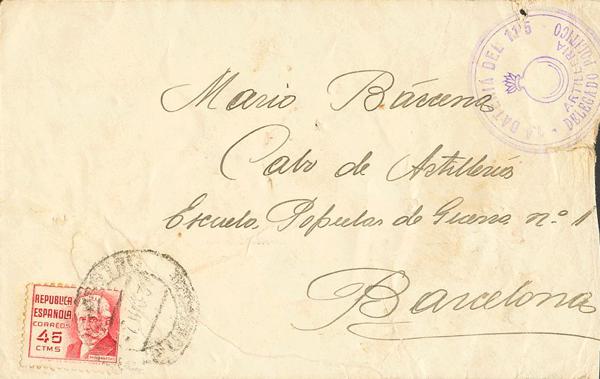 1.A BATERIA DEL 11'5 -
ARTILLERIA
DELEGADO POLITICO
Mario Bárcena
Cabo de Astillería
Escuela Popular de Guerra nº 1
Barcelona
REPUBLICA
ESPAÑOLA
CORREOS
45
CTMS